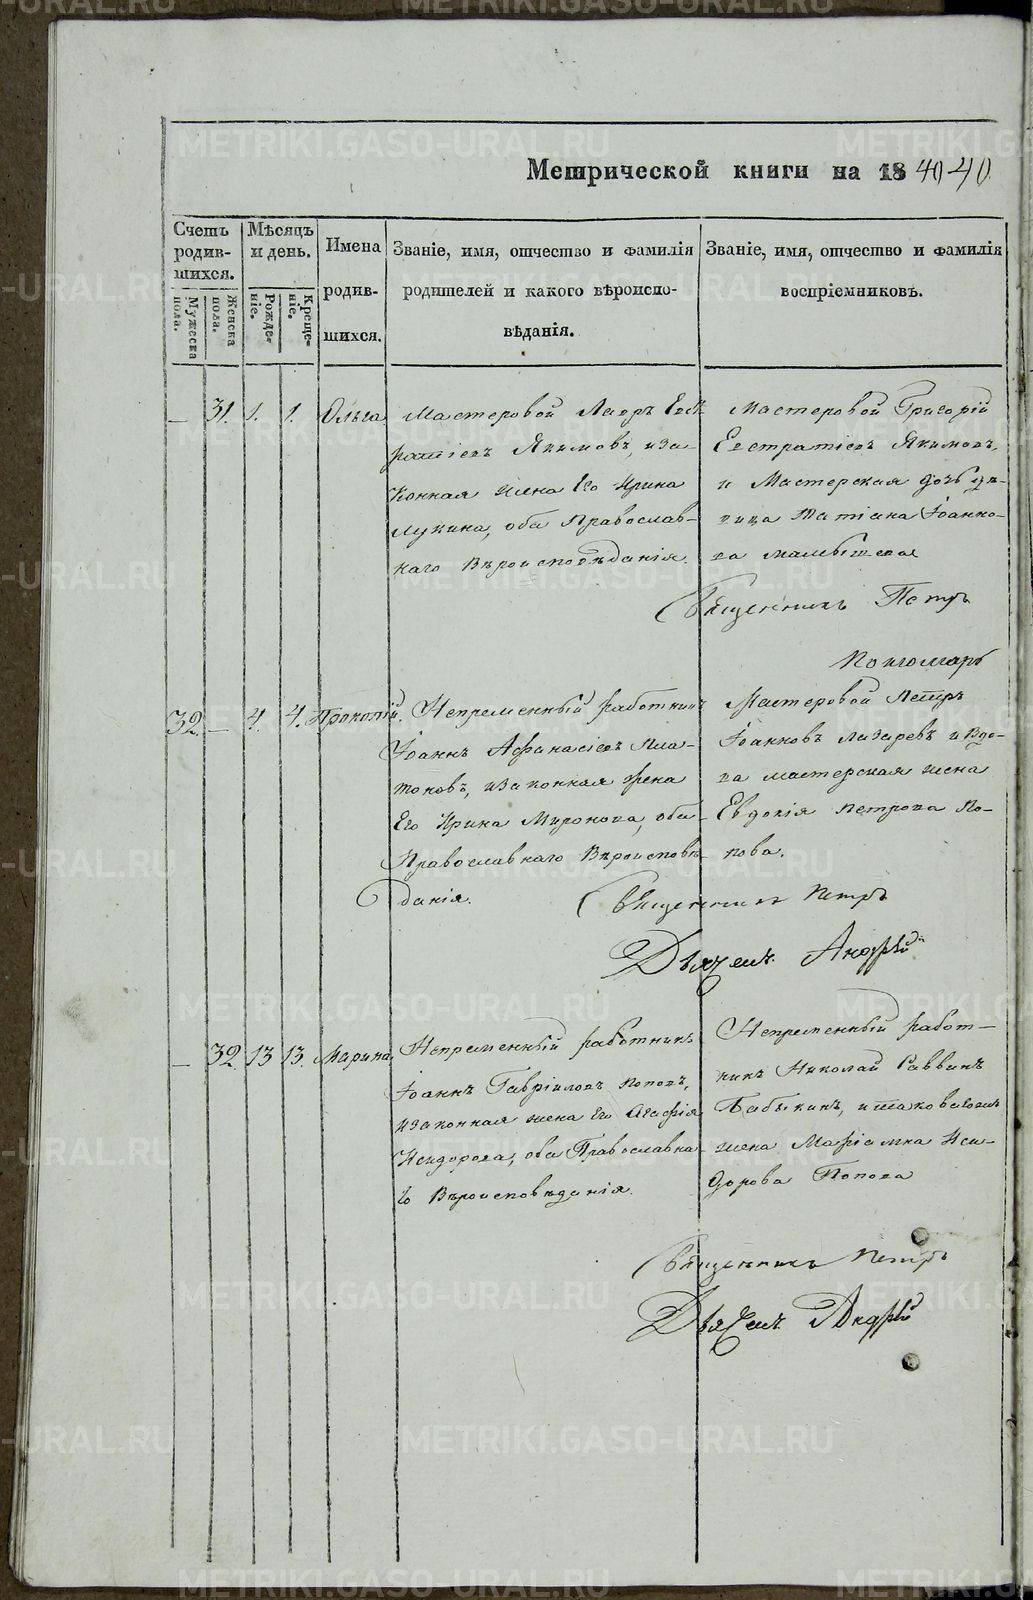 Метрической книги на 1840-40
Счетъ родив- шихся.
Мужеска пола.
Женска пола.
Мѣсяцъ и день.
Рожде- ніе.
Креще- ніе.
Имена родив- шихся.
Званіе, имя, отчество и фамилія
родителей и какого вѣроиспо-
вѣданія.
Званіе, имя, отчество и фамилія
воспріемниковъ.
— 31. 1. 1. Ольга
Мастеровой Лавръ Евст
ратіевъ Якимовъ, иза
конная жена Его Ирина
Лукина, оба Православ-
наго Вѣроисповѣданія.
Мастеровой Григорій
Евстратіевъ Якимовъ,
и Мастерская дочь дѣ-
вица Татіана Іоанно-
ва
Священникъ Петръ
Пономарь
32. — 4. 4. Прокопій.
Непременный работникъ
Іоаннъ Афанасіевъ Пла-
тоновъ, изаконная жена
Его Ирина Миронова, оба
Православнаго Вѣроисповѣ-
данія.
Мастеровой Петръ
Іоанновъ Лазаревъ и Вдо-
ва мастерская жена
Евдокія Петрова По-
пова.
Священникъ Петръ
Дьячекъ Андрей
— 32. 13 13. Марина.
Непременный работникъ
Іоаннъ Гавріиловъ Поповъ,
изаконная жена Его Агафія
Исидорова, оба Православна-
го Вѣроисповѣданія.
Непременный работ-
никъ Николай Саввинъ
Бабыкинъ, итаковагожъ
жена Маріамна Иси-
дорова Попова
Священникъ Петръ
Дьячекъ Андрей
METRIKI.GASO-URAL.RU